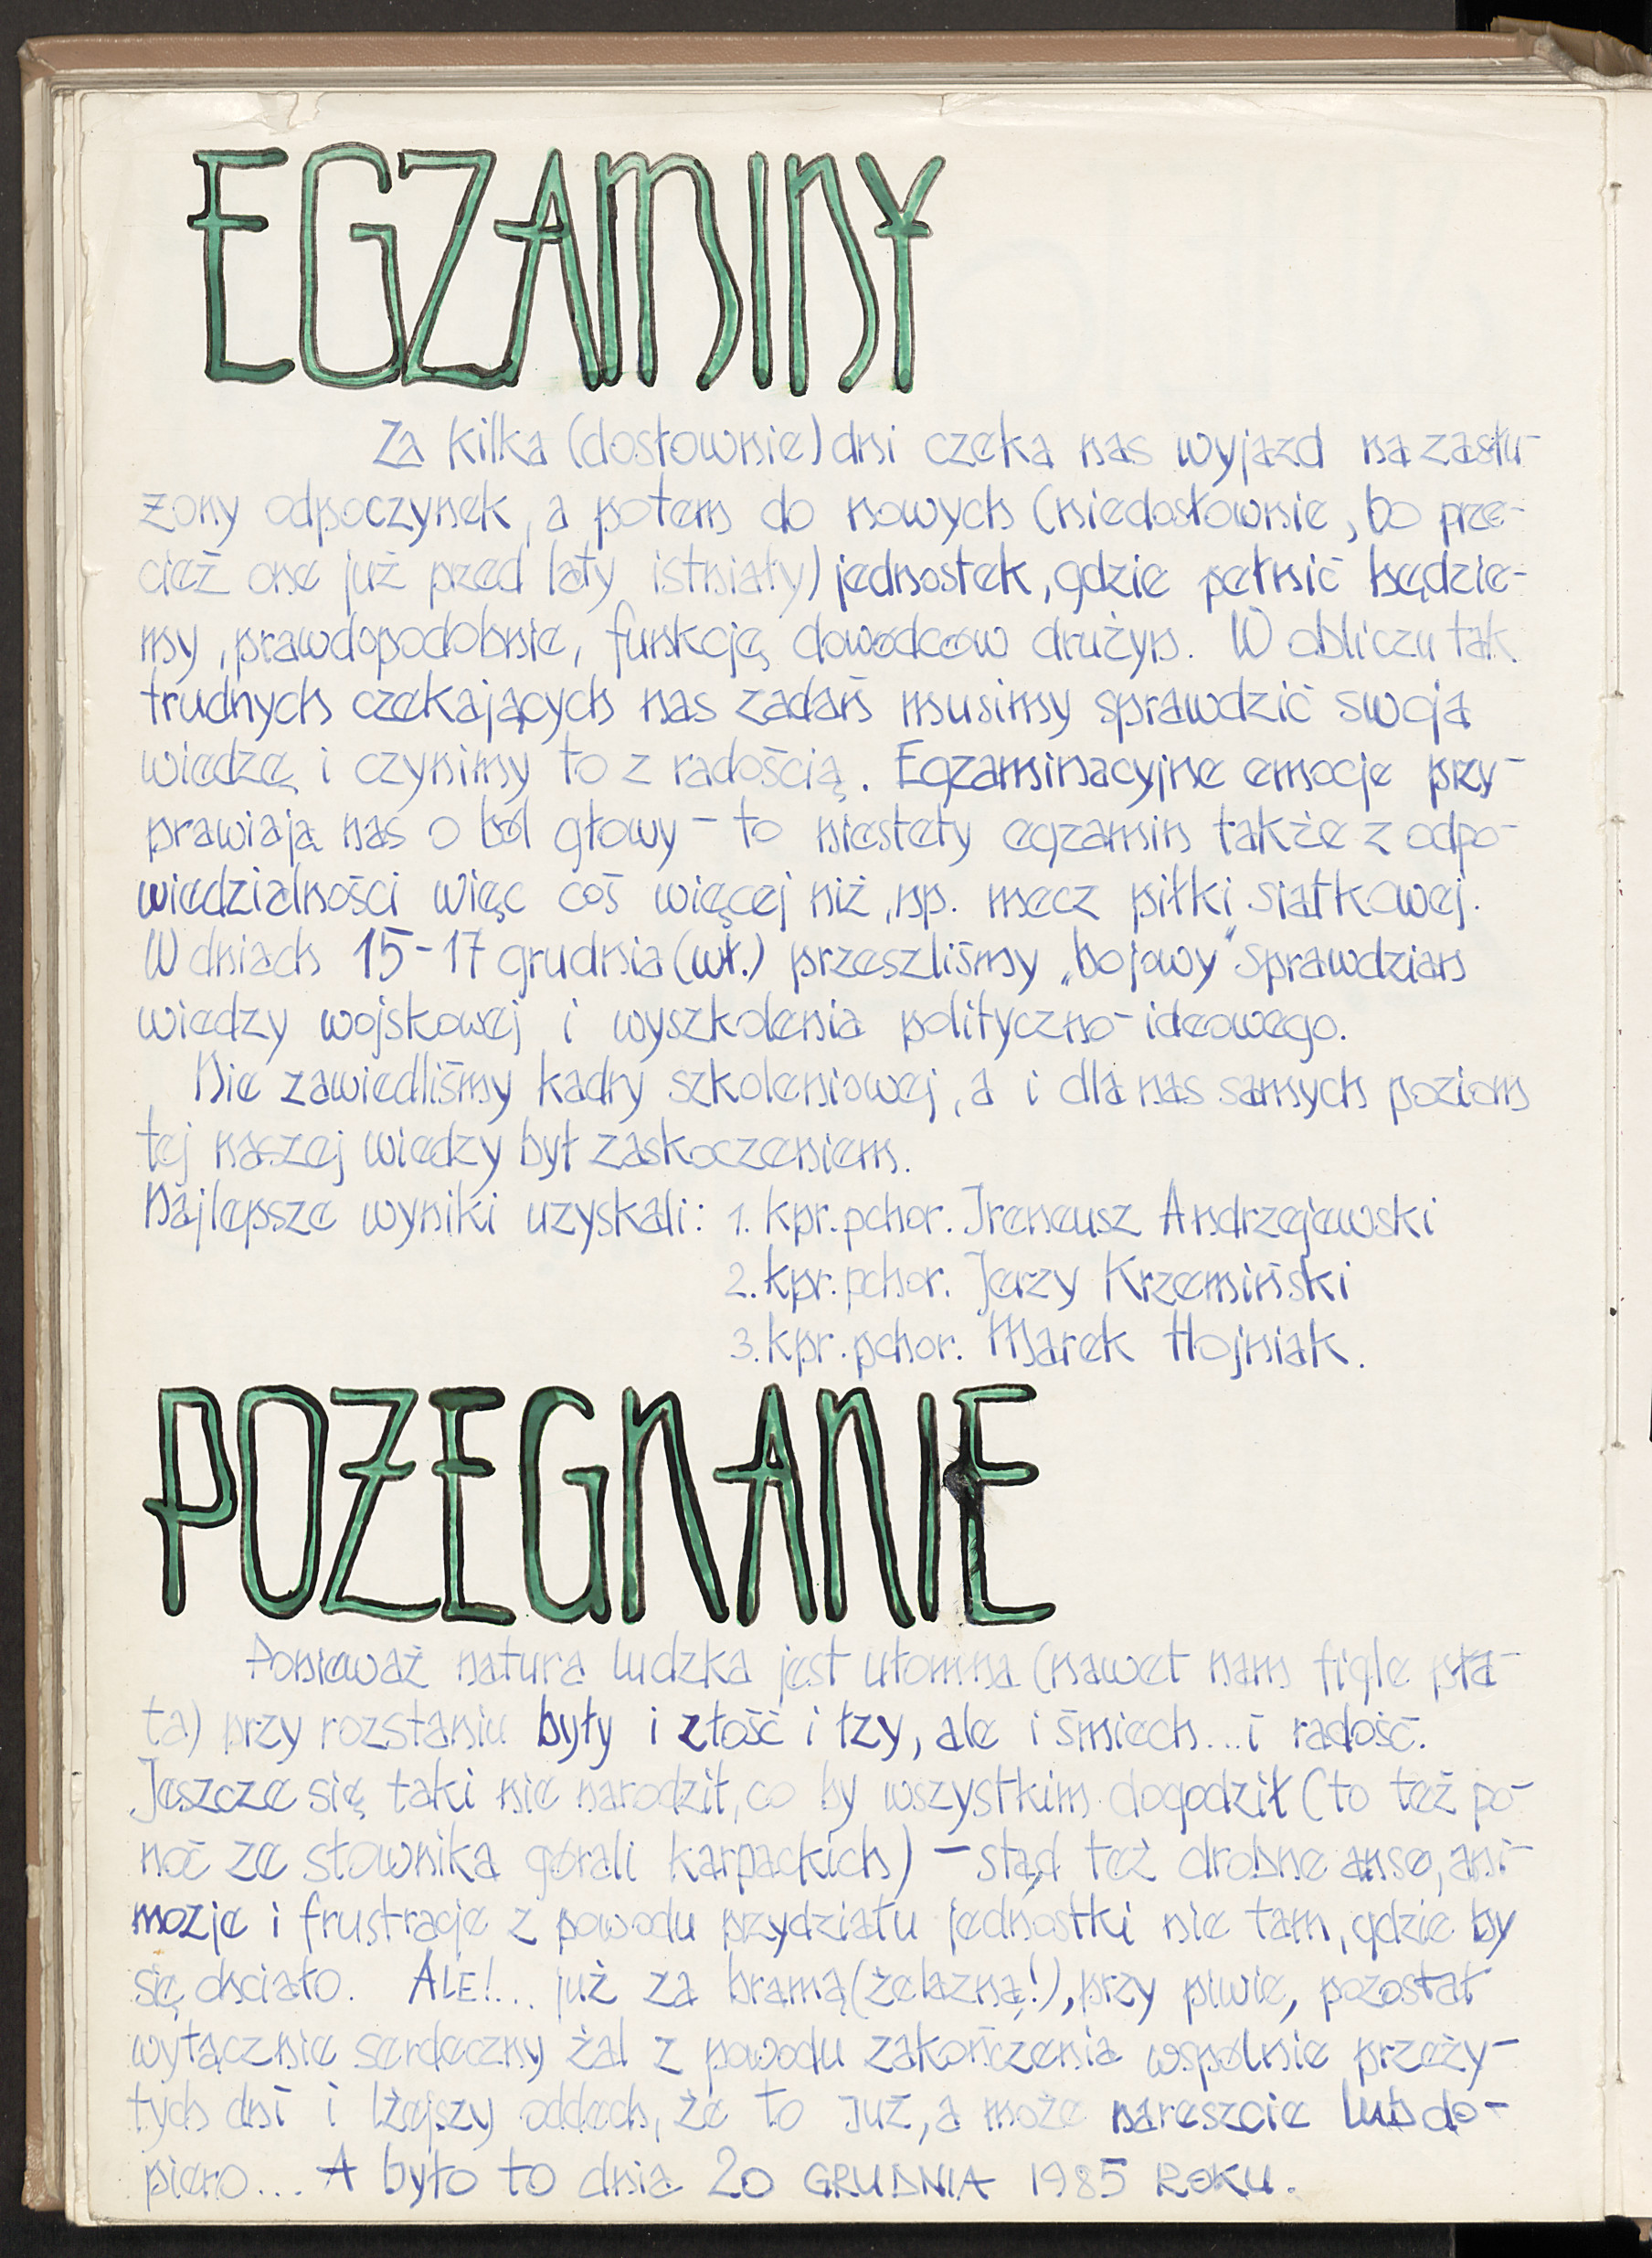 EGZAMINY
Za kilka (dosłownie) dni czeka nas wyjazd na zasłu-
żony odpoczynek, a potem do nowych (niedosłownie, bo prze-
cież one już przed laty istniały) jednostek, gdzie pełnić będzie-
my, prawdopodobnie, funkcję dowódców drużyn. W obliczu tak
trudnych czekających nas zadań musimy sprawdzić swoją
wiedzę i czynimy to z radością. Egzaminacyjne emocje przy-
prawiają nas o ból głowy - to niestety egzamin także z odpo-
wiedzialności więc coś więcej niż, np. mecz piłki siatkowej.
W dniach 15-17 grudnia (wł.) przeszliśmy „bojowy" sprawdzian
wiedzy wojskowej i wyszkolenia polityczno-ideowego.
Nie zawiedliśmy kadry szkoleniowej, a i dla nas samych poziom
tej naszej wiedzy był zaskoczeniem.
Najlepsze wyniki uzyskali: 1. kpr. pchor. Ireneusz Andrzejewski
2. kpr. pchor. Jerzy Krzemiński
3. kpr. pchor. Marek Hojniak.
POŻEGNANIE
Ponieważ natura ludzka jest ułomna (nawet nam figle pła-
ta) przy rozstaniu były i złość i łzy, ale i śmiech... i radość.
Jeszcze się taki nie narodził, co by wszystkim dogodził (to też po-
noć ze słownika górali karpackich) - stąd też drobne anse, ani-
mozje i frustracje z powodu przydziału jednostki nie tam, gdzie by
się chciało. ALE!... już za bramą (żelazną!), przy piwie, pozostał
wyłącznie serdeczny żal z powodu zakończenia wspólnie przeży-
tych dni i lżejszy oddech, że to już, a może nareszcie lub do-
piero... A było to dnia 20 GRUDNIA 1985 ROKU.